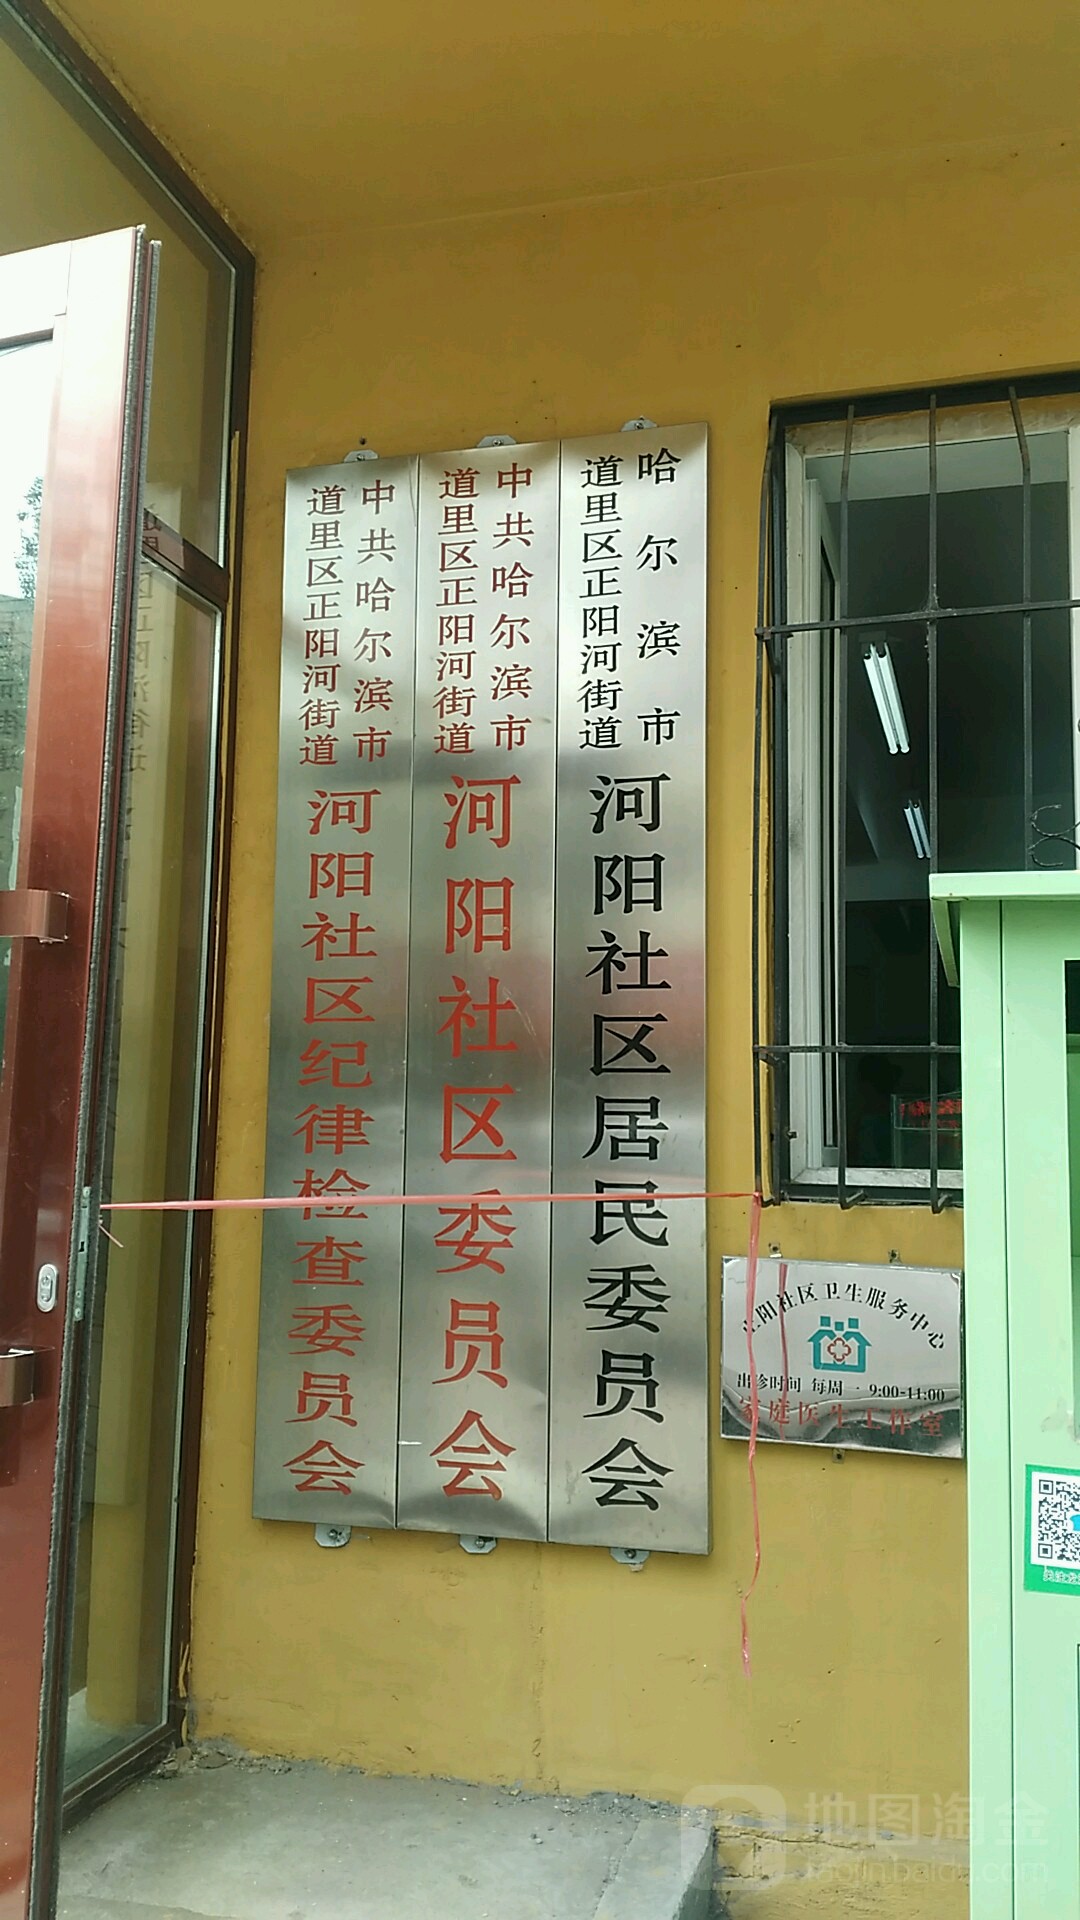 哈尔滨市
道里区正阳河街道
河阳社区居民委员会
中共哈尔滨市
道里区正阳河街道
河阳社区委员会
中共哈尔滨市
道里区正阳河街道
河阳社区纪律检查委员会
阳社区卫生服务中心
出诊时间 每周一 9:00-11:00
家庭医生工作室
地图淘金